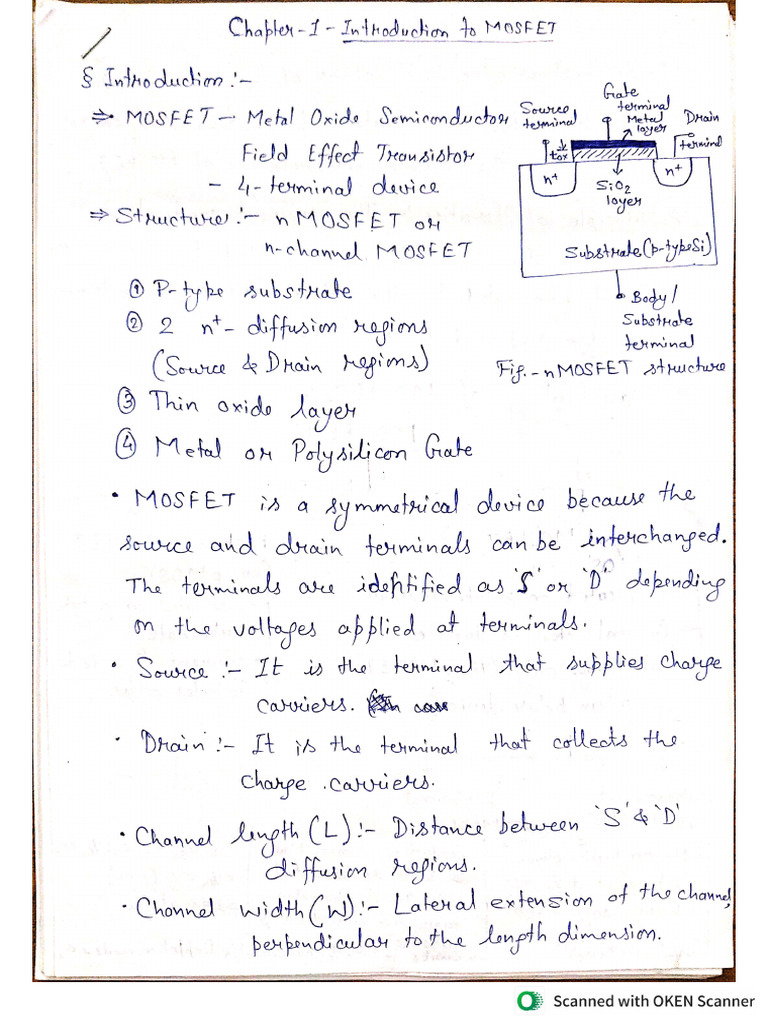 Chapter-1 - Introduction to MOSFET
§ Introduction :-
⇒ MOSFET - Metal Oxide Semiconductor
Field Effect Transistor
- 4-terminal device
⇒ Structure :- nMOSFET or
n-channel MOSFET
① P-type substrate
② 2 n⁺- diffusion regions
(Source & Drain regions)
③ Thin oxide layer
④ Metal or Polysilicon Gate
Source
terminal
Gate
terminal
Metal
layer
Drain
terminal
tox
n⁺
n⁺
SiO₂
layer
Substrate (p-type Si)
Body/
Substrate
terminal
Fig. - nMOSFET structure
• MOSFET is a symmetrical device because the
source and drain terminals can be interchanged.
The terminals are identified as 'S' or 'D' depending
on the voltages applied at terminals.
• Source :- It is the terminal that supplies charge
carriers.
• Drain :- It is the terminal that collects the
charge carriers.
• Channel length (L) :- Distance between 'S' & 'D'
diffusion regions.
• Channel width (W) :- Lateral extension of the channel,
perpendicular to the length dimension.
Scanned with OKEN Scanner